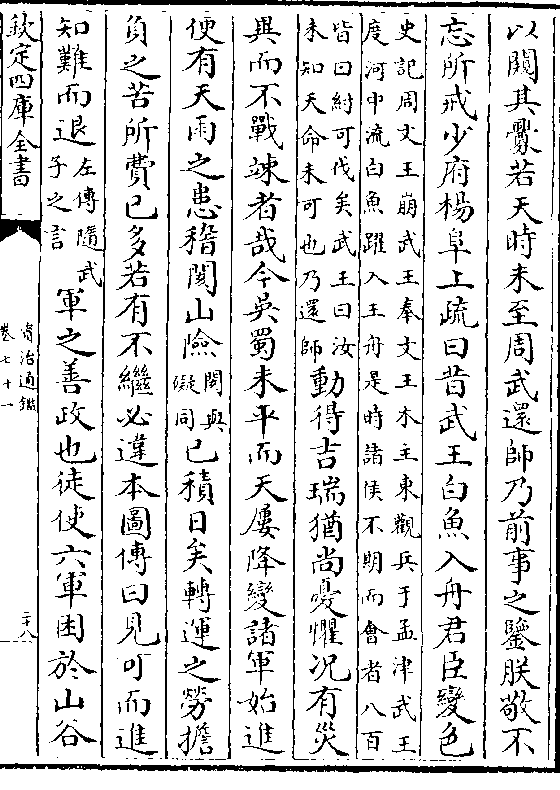 以闚其釁若天時未至周武還師乃前事之鑒朕敬不
忘所戒少府楊阜上疏曰昔武王白魚入舟君臣變色
史記周文王崩武王奉文王木主東觀兵于孟津武王
度河中流白魚躍入王舟是時諸侯不期而會者八百
皆曰紂可伐矣武王曰汝
未知天命未可也乃還師
動得吉瑞猶尚憂懼况有災
異而不戰竦者哉今吳蜀未平而天屢降變諸軍始進
便有天雨之患稽閡山險
閡與
礙同
已積日矣轉運之勞擔
負之苦所費已多若有不繼必違本圖傳曰見可而進
知難而退
左傳隨武
子之言
軍之善政也徒使六軍困於山谷
欽定四庫全書
資治通鑑
卷七十一
二十八